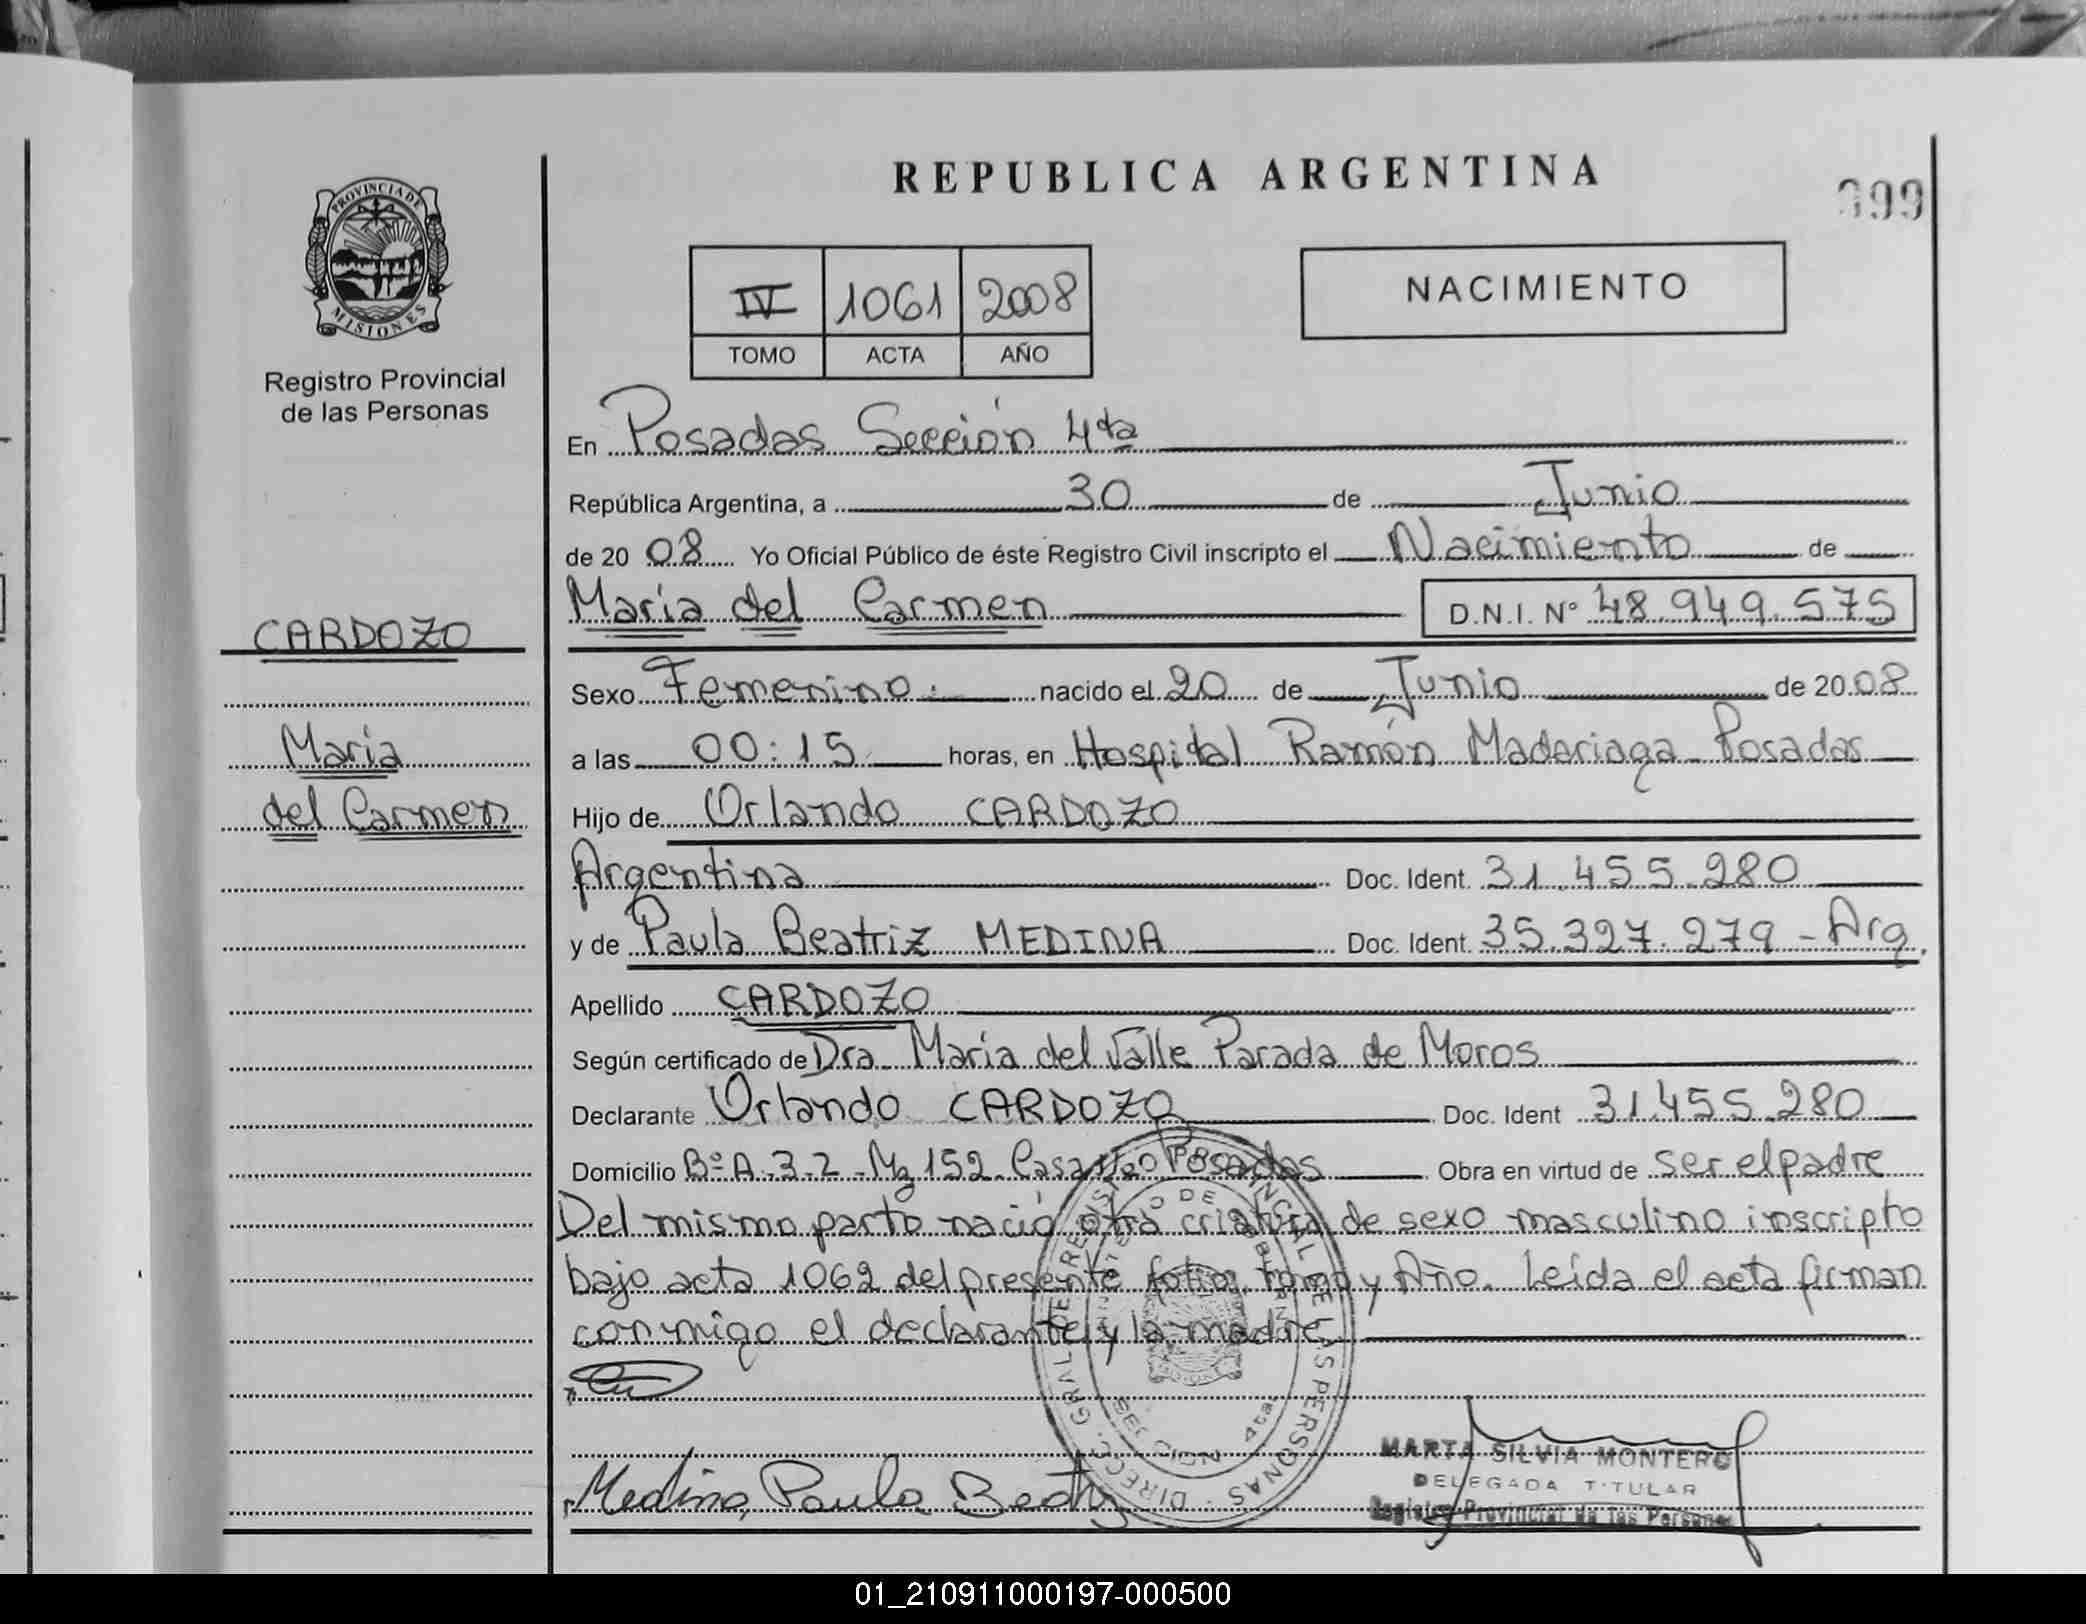 REPUBLICA ARGENTINA
399
PROVINCIA DE
MISIONES
Registro Provincial
de las Personas
IV 1061 2008
TOMO ACTA AÑO
NACIMIENTO
En Posadas Sección 4ta
República Argentina, a 30 de Junio
de 20 08 Yo Oficial Público de éste Registro Civil inscripto el Nacimiento de
María del Carmen D.N.I. N° 48.949.575
CARDOZO
María
del Carmen
Sexo Femenino. nacido el 20 de Junio de 20 08
a las 00:15 horas, en Hospital Ramón Madariaga Posadas
Hijo de Orlando CARDOZO
Argentina Doc. Ident. 31.455.280
y de Paula Beatriz MEDINA Doc. Ident. 35.327.279 - Arg.
Apellido CARDOZO
Según certificado de Dra. María del Valle Parada de Moros
Declarante Orlando CARDOZO Doc. Ident 31.455.280
Domicilio B° A.3.2 - Mz 152 Casa Posadas Obra en virtud de ser el padre
Del mismo parto nació otra criatura de sexo masculino inscripto
bajo acta 1062 del presente folio, tomo y Año. Leída el acta firman
conmigo el declarante y la madre.
Medina, Paula
MARTA SILVIA MONTERO
DELEGADA TITULAR
Registro Provincial de las Personas
01_210911000197-000500